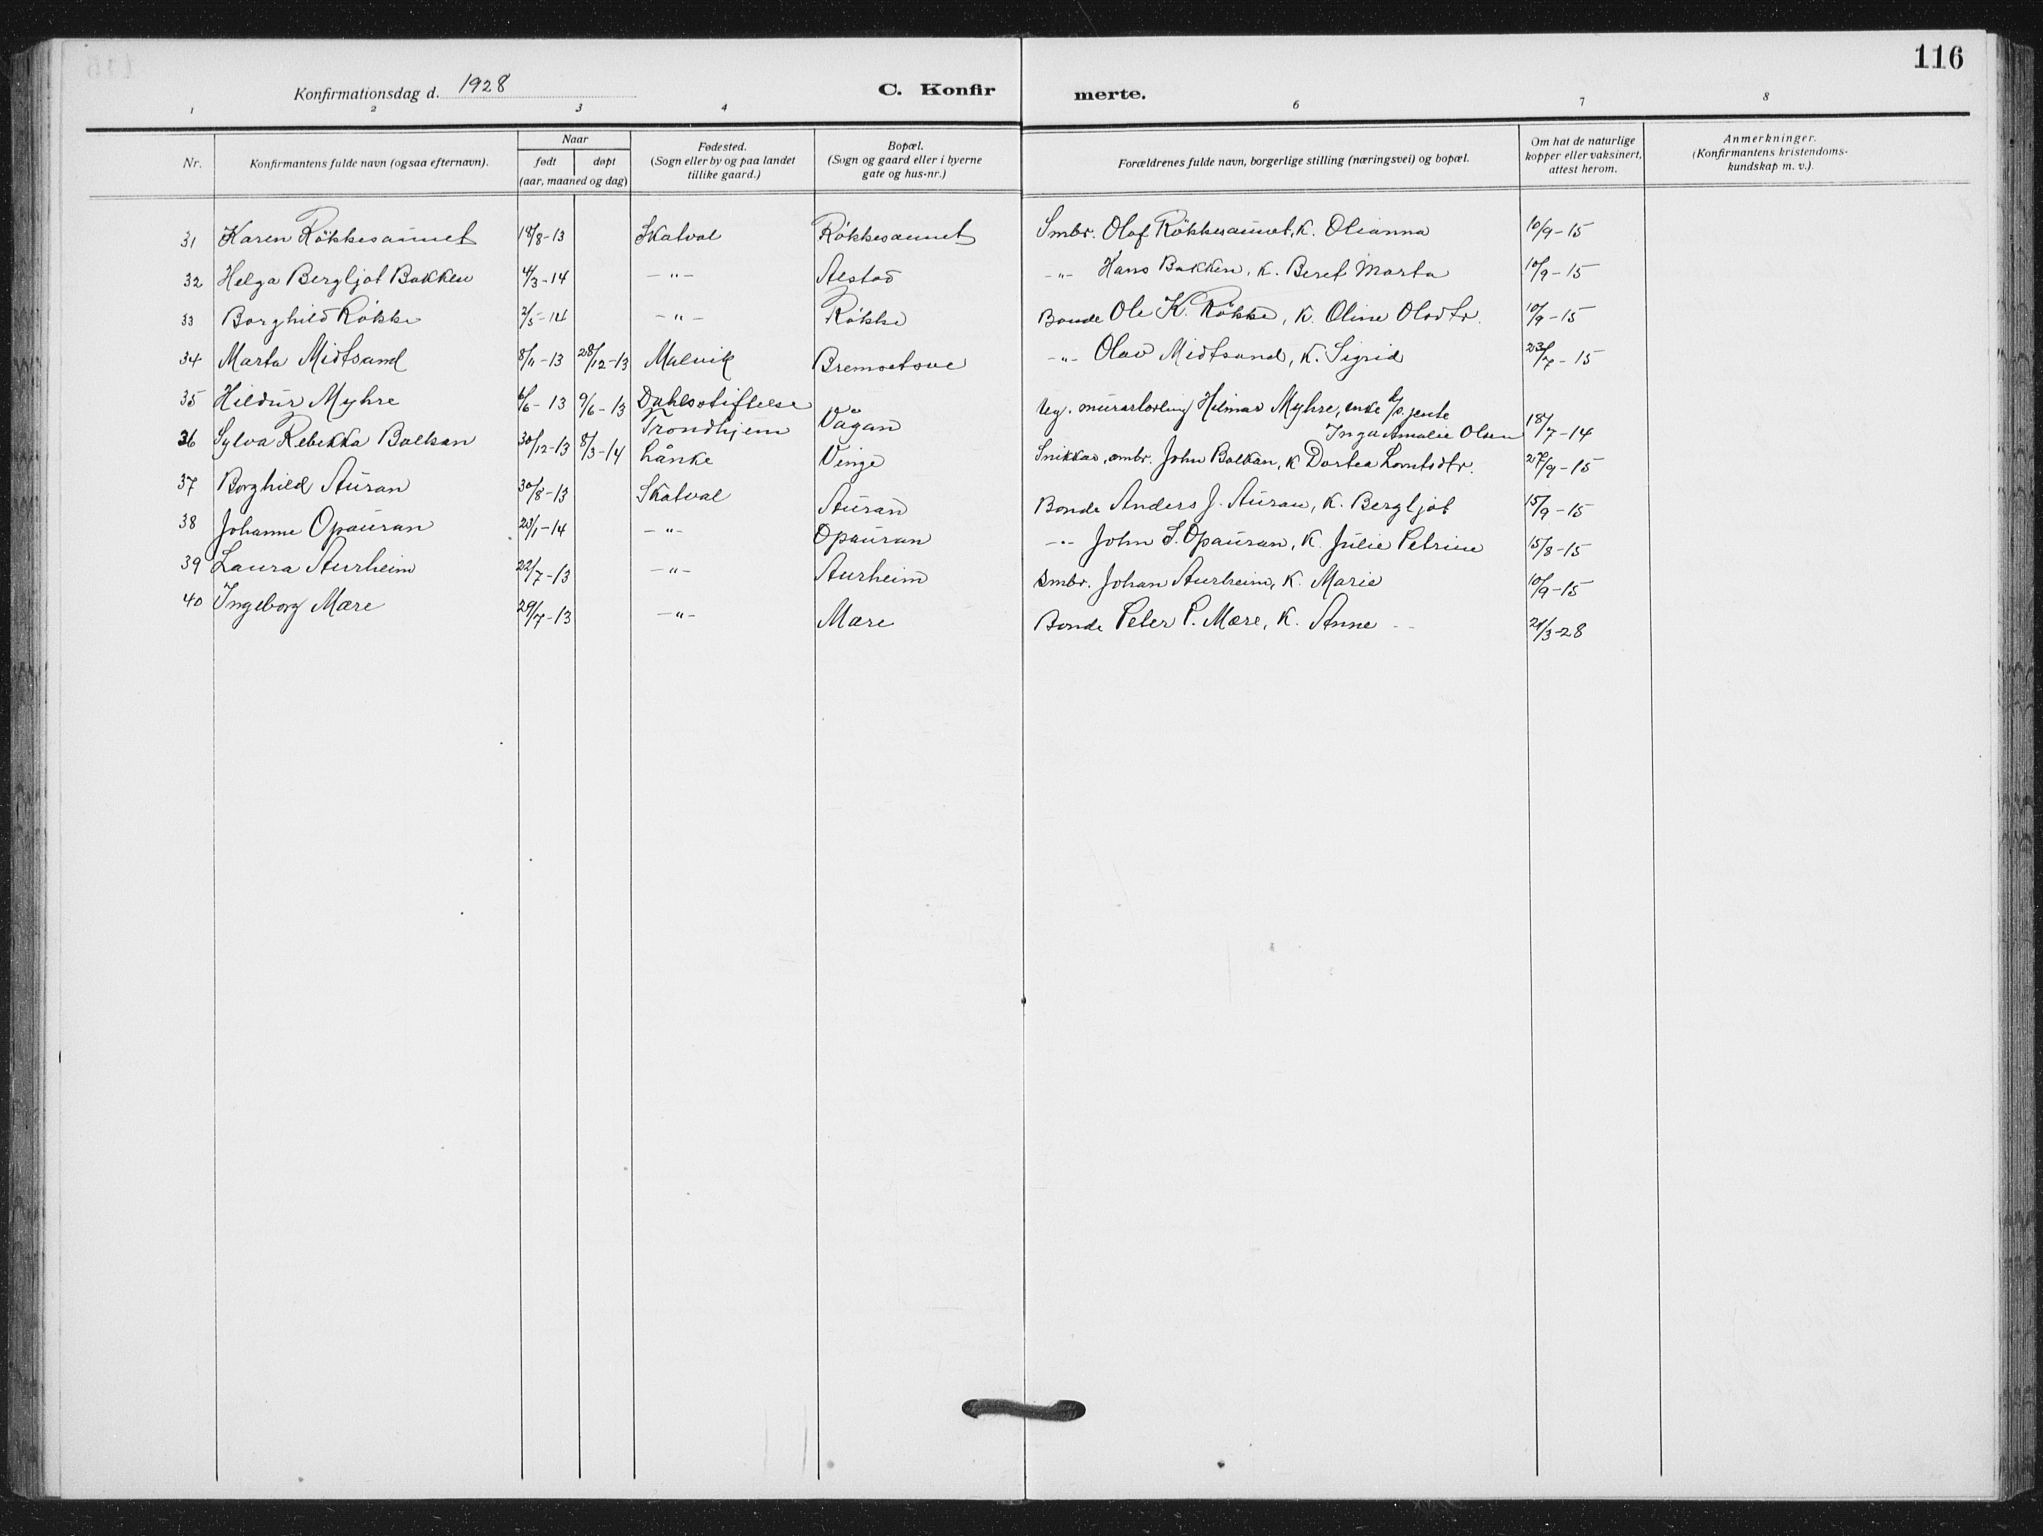 116
Konfirmationsdag d. 1928
C. Konfir merte.
1 2 3 4 6 7 8
Nr.
Konfirmantens fulde navn (ogsaa efternavn).
Naar
født døpt
(aar, maaned og dag)
Fødested.
(Sogn eller by og paa landet
tillike gaard.)
Bopæl.
(Sogn og gaard eller i byerne
gate og hus-nr.)
Forældrenes fulde navn, borgerlige stilling (næringsvei) og bopæl.
Om hat de naturlige
kopper eller vaksinert,
attest herom.
Anmerkninger.
(Konfirmantens kristendoms-
kundskap m. v.).
31 Karen Røkkesaunet 18/8-13 Skatval Røkkesaunet Smbr. Olof Røkkesaunet, K. Olianna 10/9-15
32 Helga Bergljot Bakken 4/3-14 -"- Alstad -"- Hans Bakken, K. Beret Marta 10/9-15
33 Borghild Røkke 2/5-14 -"- Røkke Bonde Ole K. Røkke, K. Oline Olsdtr. 10/9-15
34 Marta Midtsand 8/11-13 28/12-13 Malvik -"- Olav Midtsand, K. Sigrid 23/7-15
35 Hildur Myhre 6/6-13 9/6-13 Dahlsstiftelse Trondhjem Vågan Ug. Hilmar Myhre, jente
Inga Amalie Olsen 18/7-14
36 Sylva Rebekka Balkan 30/12-13 8/3-14 Lånke Vinge Snikkar, smbr. John Balkan, K Dortea Lorntsdtr. 27/9-15
37 Borghild Auran 30/8-13 Skatval Auran Bonde Anders J. Auran, K. Bergljot 15/9-15
38 Johanne Opauran 23/1-14 -"- Opauran -"- John S. Opauran, K. Julie Petrine 15/8-15
39 Laura Aurheim 22/7-13 -"- Aurheim Smbr. Johan Aurheim, K. Marie 10/9-15
40 Ingeborg Mære 29/7-13 -"- Mære Bonde Peter P. Mære, K. Anne 21/3-28